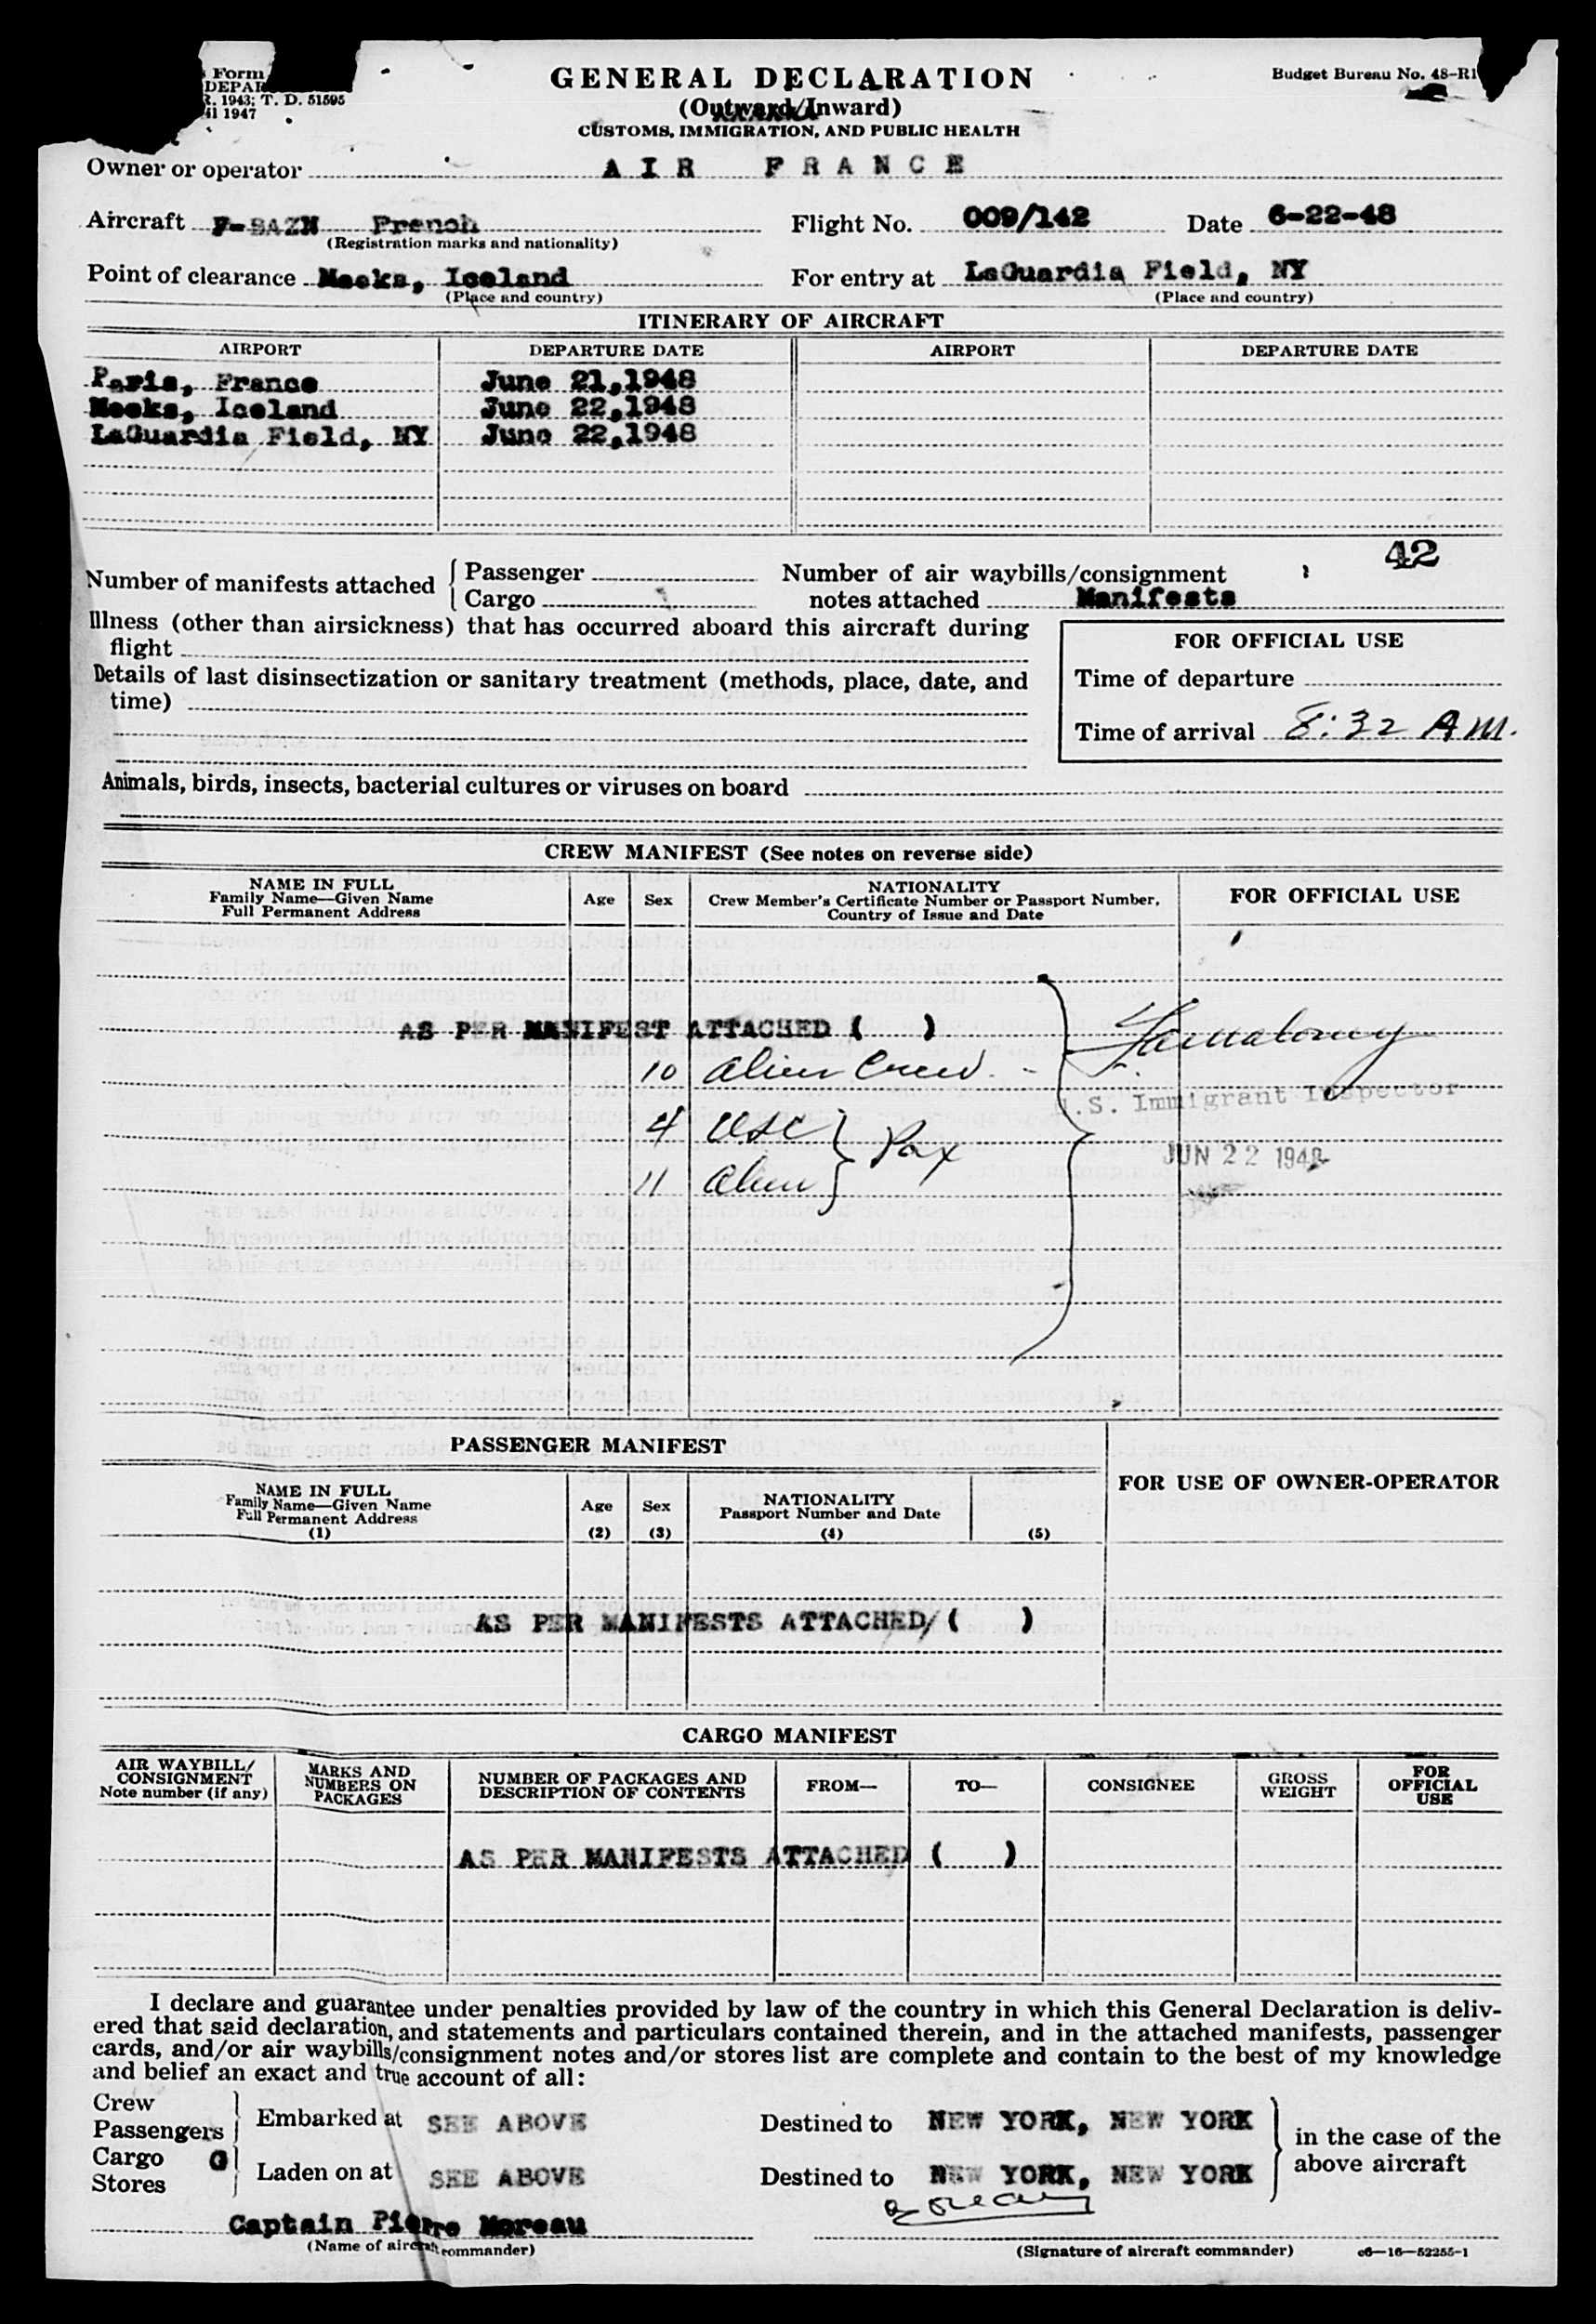 Form
DEPAR
R. 1943; T. D. 51595
il 1947
GENERAL DECLARATION
(Outward/Inward)
CUSTOMS, IMMIGRATION, AND PUBLIC HEALTH
Budget Bureau No. 48-R1
Owner or operator AIR FRANCE
Aircraft F-BAZN French Flight No. 009/142 Date 6-22-48
(Registration marks and nationality)
Point of clearance Meeks, Iceland For entry at LaGuardia Field, NY
(Place and country) (Place and country)
ITINERARY OF AIRCRAFT
AIRPORT DEPARTURE DATE AIRPORT DEPARTURE DATE
Paris, France June 21,1948
Meeks, Iceland June 22,1948
LaGuardia Field, NY June 22,1948
42
Number of manifests attached { Passenger Number of air waybills/consignment
Cargo notes attached Manifests
Illness (other than airsickness) that has occurred aboard this aircraft during
flight
FOR OFFICIAL USE
Details of last disinsectization or sanitary treatment (methods, place, date, and
time)
Time of departure
Time of arrival 8:32 AM.
Animals, birds, insects, bacterial cultures or viruses on board
CREW MANIFEST (See notes on reverse side)
NAME IN FULL
Family Name—Given Name
Full Permanent Address
Age
Sex
NATIONALITY
Crew Member's Certificate Number or Passport Number,
Country of Issue and Date
FOR OFFICIAL USE
AS PER MANIFEST ATTACHED ( )
10 Alien Crew
U.S. Immigrant Inspector
4 USC } Pax
JUN 22 1948
11 Alien
PASSENGER MANIFEST
FOR USE OF OWNER-OPERATOR
NAME IN FULL
Family Name—Given Name
Full Permanent Address
(1)
Age
(2)
Sex
(3)
NATIONALITY
Passport Number and Date
(4)
(5)
AS PER MANIFESTS ATTACHED/( )
CARGO MANIFEST
AIR WAYBILL/
CONSIGNMENT
Note number (if any)
MARKS AND
NUMBERS ON
PACKAGES
NUMBER OF PACKAGES AND
DESCRIPTION OF CONTENTS
FROM—
TO—
CONSIGNEE
GROSS
WEIGHT
FOR
OFFICIAL
USE
AS PER MANIFESTS ATTACHED ( )
I declare and guarantee under penalties provided by law of the country in which this General Declaration is deliv-
ered that said declaration, and statements and particulars contained therein, and in the attached manifests, passenger
cards, and/or air waybills/consignment notes and/or stores list are complete and contain to the best of my knowledge
and belief an exact and true account of all:
Crew
Passengers } Embarked at SEE ABOVE Destined to NEW YORK, NEW YORK
in the case of the
above aircraft
Cargo
Stores } Laden on at SEE ABOVE Destined to NEW YORK, NEW YORK
Captain Pierre Moreau
(Name of aircraft commander) (Signature of aircraft commander) c6—16—52255-1